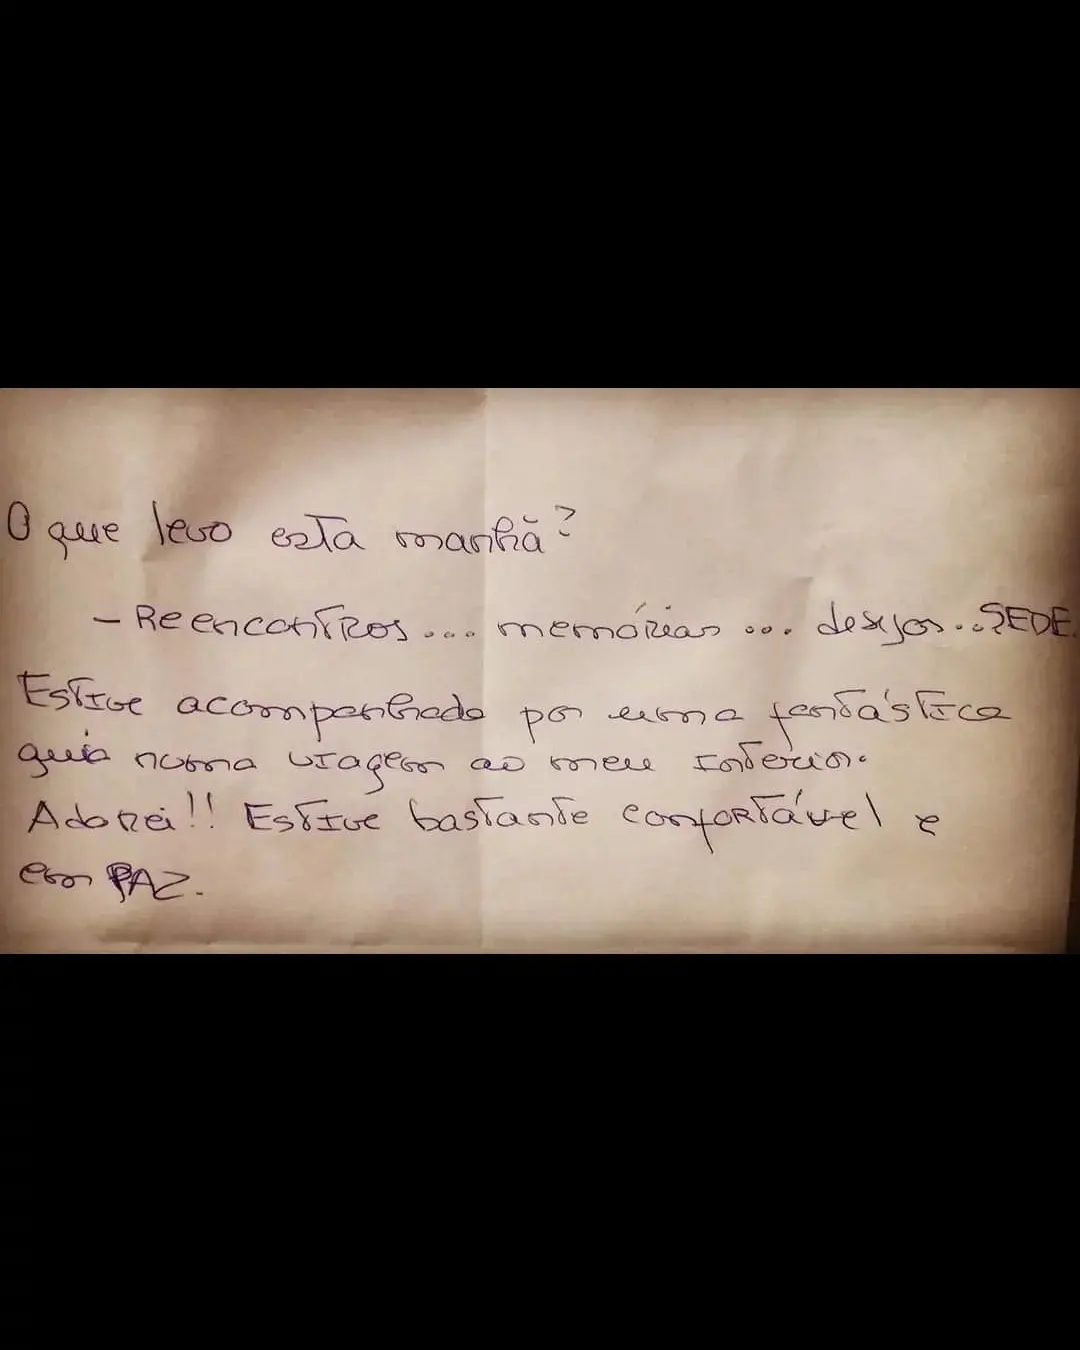 O que levo esta manhã?
- Reencontros... memórias... desejos... SEDE.
Estive acompanhado por uma fantástica
guia numa viagem ao meu Interior.
Adorei!! Estive bastante confortável e
em PAZ.